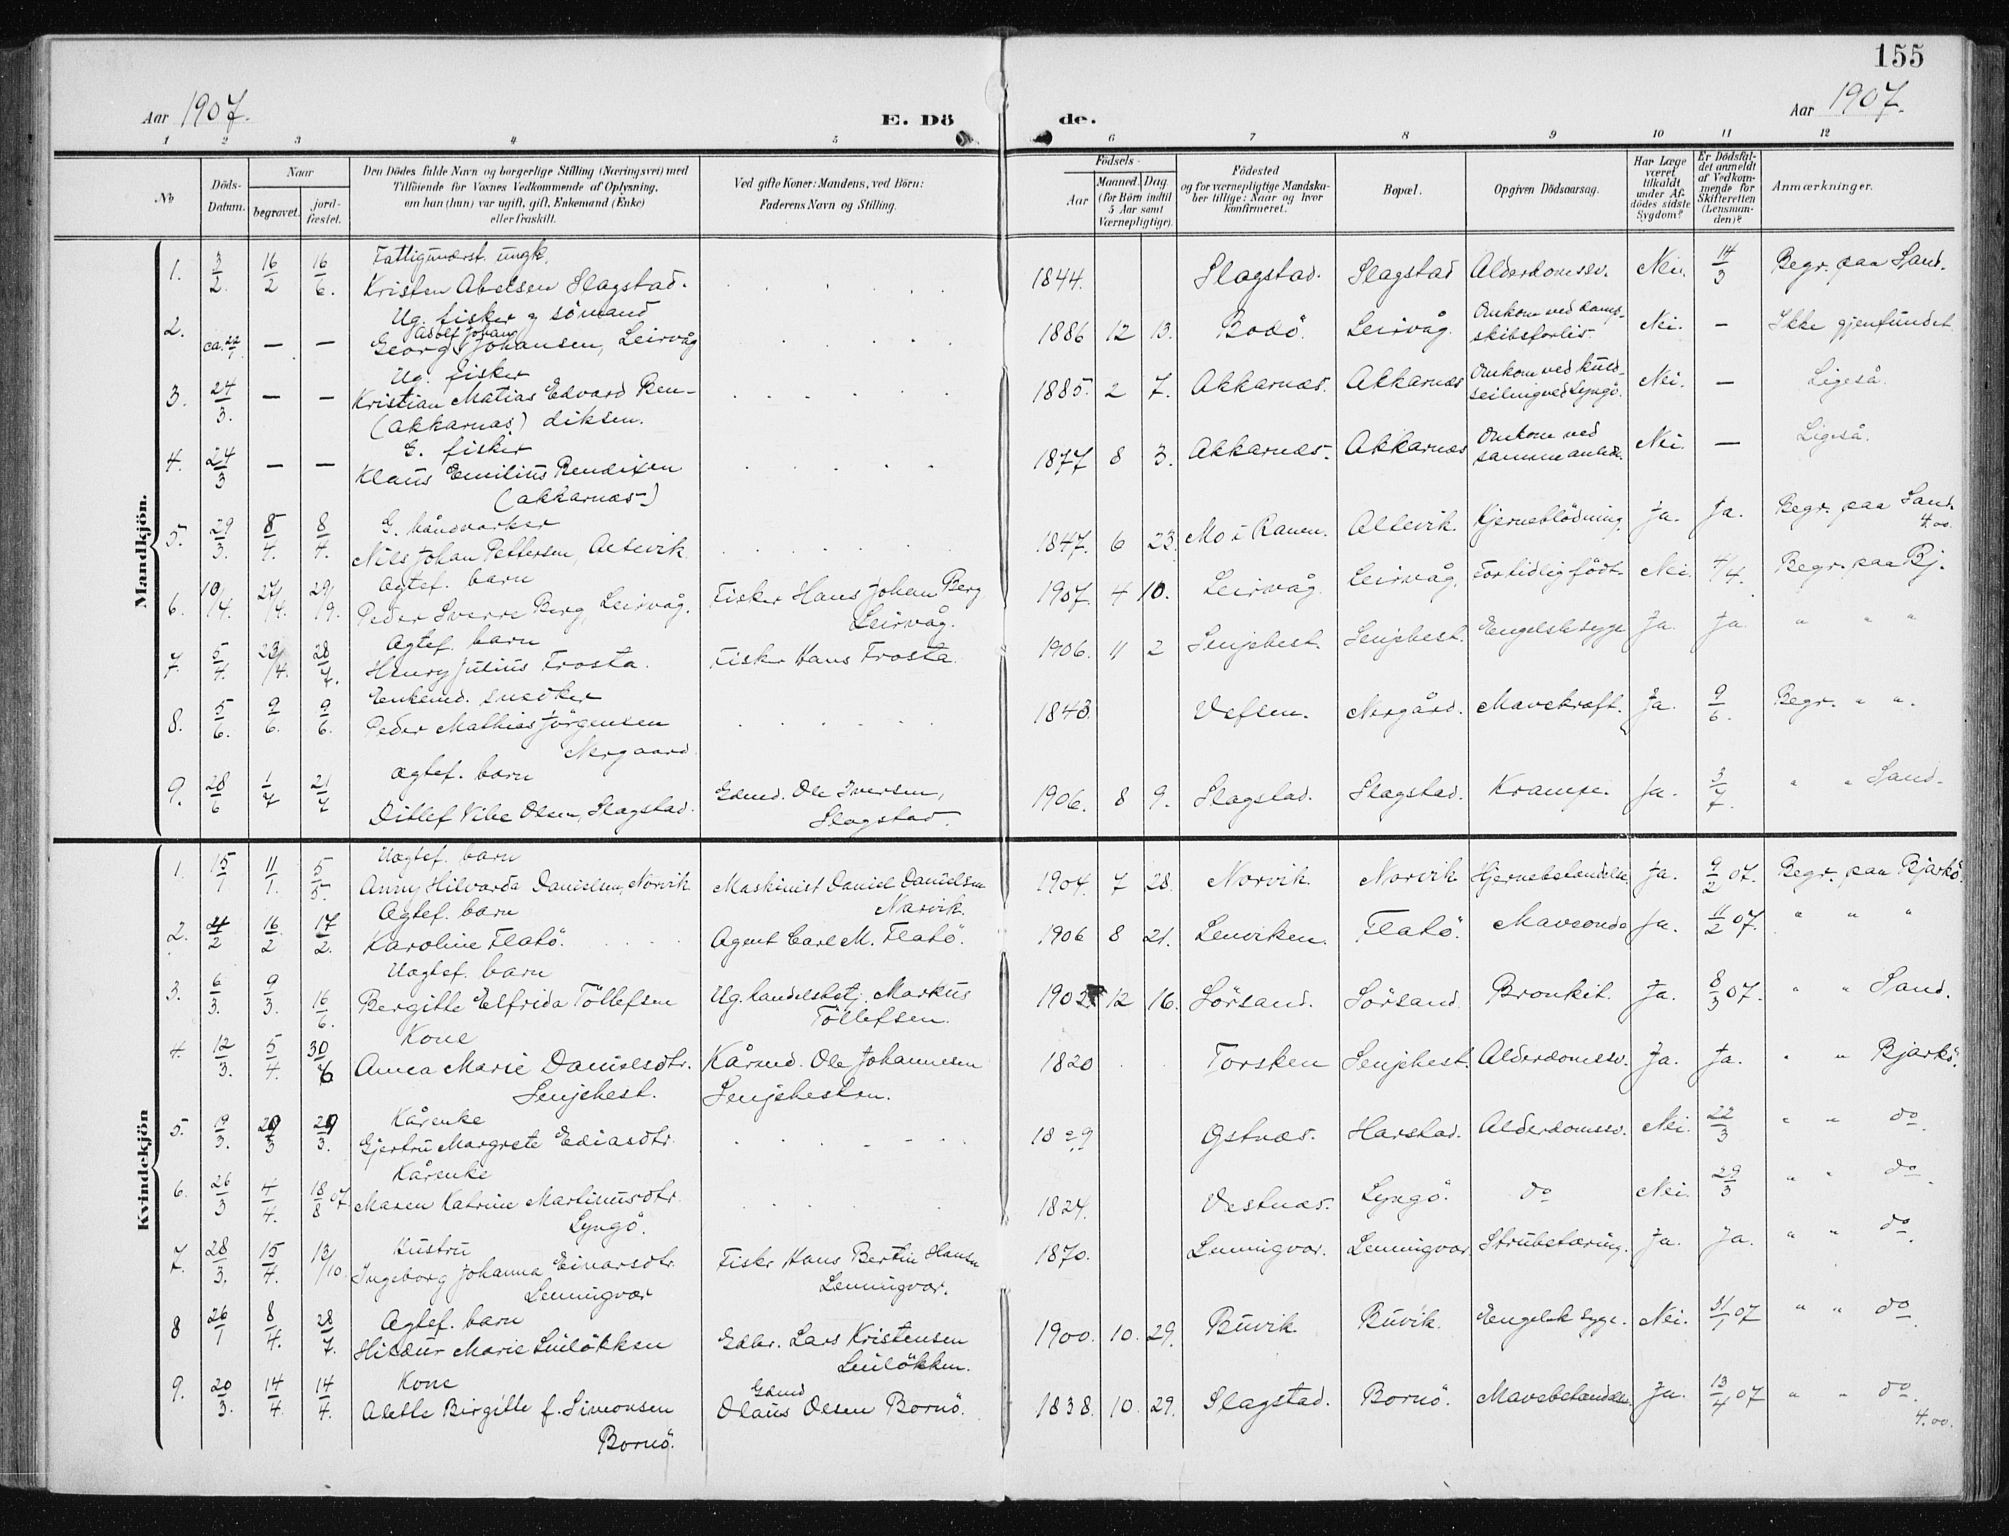 155
Aar 1907.
E. Dö de.
Aar 1907.
1 2 3 4 5 6 7 8 9 10 11 12
No
Döds-Datum.
Naar
begravet.
jord-fæstet.
Den Dödes fulde Navn og borgerlige Stilling (Næringsvei) med
Tilföiende for Voxnes Vedkommende af Oplysning,
om han (hun) var ugift, gift, Enkemand (Enke)
eller fraskilt.
Ved gifte Koner: Mandens, ved Börn:
Faderens Navn og Stilling.
Födsels-
Aar
Maaned. Dag
(for Börn indtil
5 Aar samt
Værnepligtige).
Födested
og for værnepligtige Mandska-
ber tillige: Naar og hvor
konfirmeret.
Bopæl.
Opgiven Dödsaarsag.
Har Læge
været
tilkaldt
under Af-
dödes sidste
Sygdom?
Er Dödsfal-
det anmeldt
af Vedkom-
mende for
Skifteretten
(Lensman-
den)?
Anmærkninger.
Mandkjön.
Fattigunderst. ungk.
1. 3/2. 16/2 16/6. Kristen Abelsen Slagstad. 1844. Slagstad. Slagstad Alderdomssv. Nei. 14/3 Begr. paa Sand.
Ug. fisker og sömand
Adolf Johan
2. ca. 22/1 — — Georg Johansen, Leirvåg 1886 12 13. Bodö Leirvåg. Omkom ved damp-
skibsforlis. Nei. — Ikke gjenfundet
Ug. fisker
3. 24/3. — — Kristian Matias Edvard Ben- 1885. 2 7. Akkarnæs. Akkarnæs Omkom ved kuld-
seiling ved Lyngö. Nei. — Ligeså.
(Akkarnæs) diksen.
G. fisker
4. 24/3 — — Klaus Emilius Bendixen 1877 8 3. Akkarnæs. Akkarnæs Omkom ved
samme anled. Nei. — Ligeså.
(Akkarnæs)
G. håndværker
5. 29/3. 8/4. 8/4. Nils Johan Pettersen, Altevik 1847. 6 23. Mo i Ranen. Altevik. Hjerneblödning. Ja. Ja. Begr. paa Sand.
4.00
Ægtef. barn
6. 10/4. 27/4. 29/9. Peder Sverre Berg, Leirvåg. Fisker Hans Johan Berg 1907. 4 10. Leirvåg Leirvåg. For tidlig födt. Nei. Begr. paa Bj.
Leirvåg.
Ægtef. barn
7. 5/4. 23/4. 28/7. Henry Julius Frosta. Fisker Hans Frosta. 1906. 11 2 Senjehest. Senjehest. Engelsk syge Ja. Ja. " " "
Enkemd. snedker
8. 5/6. 9/6. 9/6. Peder Mathias Jörgensen 1843. Vefsen. Nergård. Mavekræft. Ja. 9/6. Begr. " ".
Nergaard.
Ægtef. barn
9. 28/6 1/7 21/7 Ditlef Vibe Olsen, Slagstad. Gdmd. Ole Iversen, 1906. 8 9. Slagstad. Slagstad. Krampe. Ja. 3/7. " " Sand.
Slagstad.
Kvindekjön
Uægtef. barn
1. 15/1 11/1. 5/5. Anny Hilvarda Danielsen, Norvik Maskinist Daniel Danielsen 1904. 7 28. Norvik. Norvik Hjernebetændelse. Ja. 9/2 07. Begr. paa Bjarkö.
Narvik.
Ægtef. barn
2. 4/2 16/2 17/2. Karoline Flatö. Agent Carl M. Flatö. 1906 8 21. Lenviken. Flatö. Maveonde Ja. 11/2 07. " " "
Uægtef. barn
3. 6/3. 9/3. 16/6. Bergitte Elfrida Töllefsen Ug. handelsbetj. Markus 1902 12 16. Sörsand. Sörsand. Bronkit. Ja. 8/3 07. " " Sand.
Töllefsen.
Kone
4. 12/3. 5/4. 30/6 Anna Marie Danielsdtr. Kårmd. Ole Johannesen 1820 Torsken Senjehest. Alderdomssv. Ja. Ja. " " Bjarkö.
Senjehest. Senjehesten.
Kårenke
5. 19/3. 29/3 29/3. Gjertru Margrete Eliasdtr. 1829 Gstnæs. Harstad. Alderdomssv. Nei. 22/3 " " do.
Kårenke
6. 26/3 4/4. 18/8 07 Maren Katrine Martinusdtr. 1824. Vestnæs. Lyngö. do Nei. 29/3 " " do.
Lyngö.
Hustru
7. 28/3. 15/4. 13/10 Ingeborg Johanna Einarsdtr. Fisker Hans Bertin Hansen 1870. Lemmingvær. Lemmingvær. Strubetæring. Ja. Ja. " " do.
Lemmingvær Lemmingvær.
Ægtef. barn
8 26/1 8/4. 28/7. Hildur Marie Lilökken Gdbr. Lars Kristensen 1900. 10. 29. Buvik. Buvik. Engelsk syge. Nei. 31/1 07 " " do.
Lilökken.
Kone Gdmd
9. 20/3. 14/4. 14/4. Alette Birgitte f. Simonsen Olaus Olsen Bornö. 1838. 10. 29. Slagstad. Bornö. Mavebetændelse Ja. 13/4 07 " " do.
Bornö. 4.00.